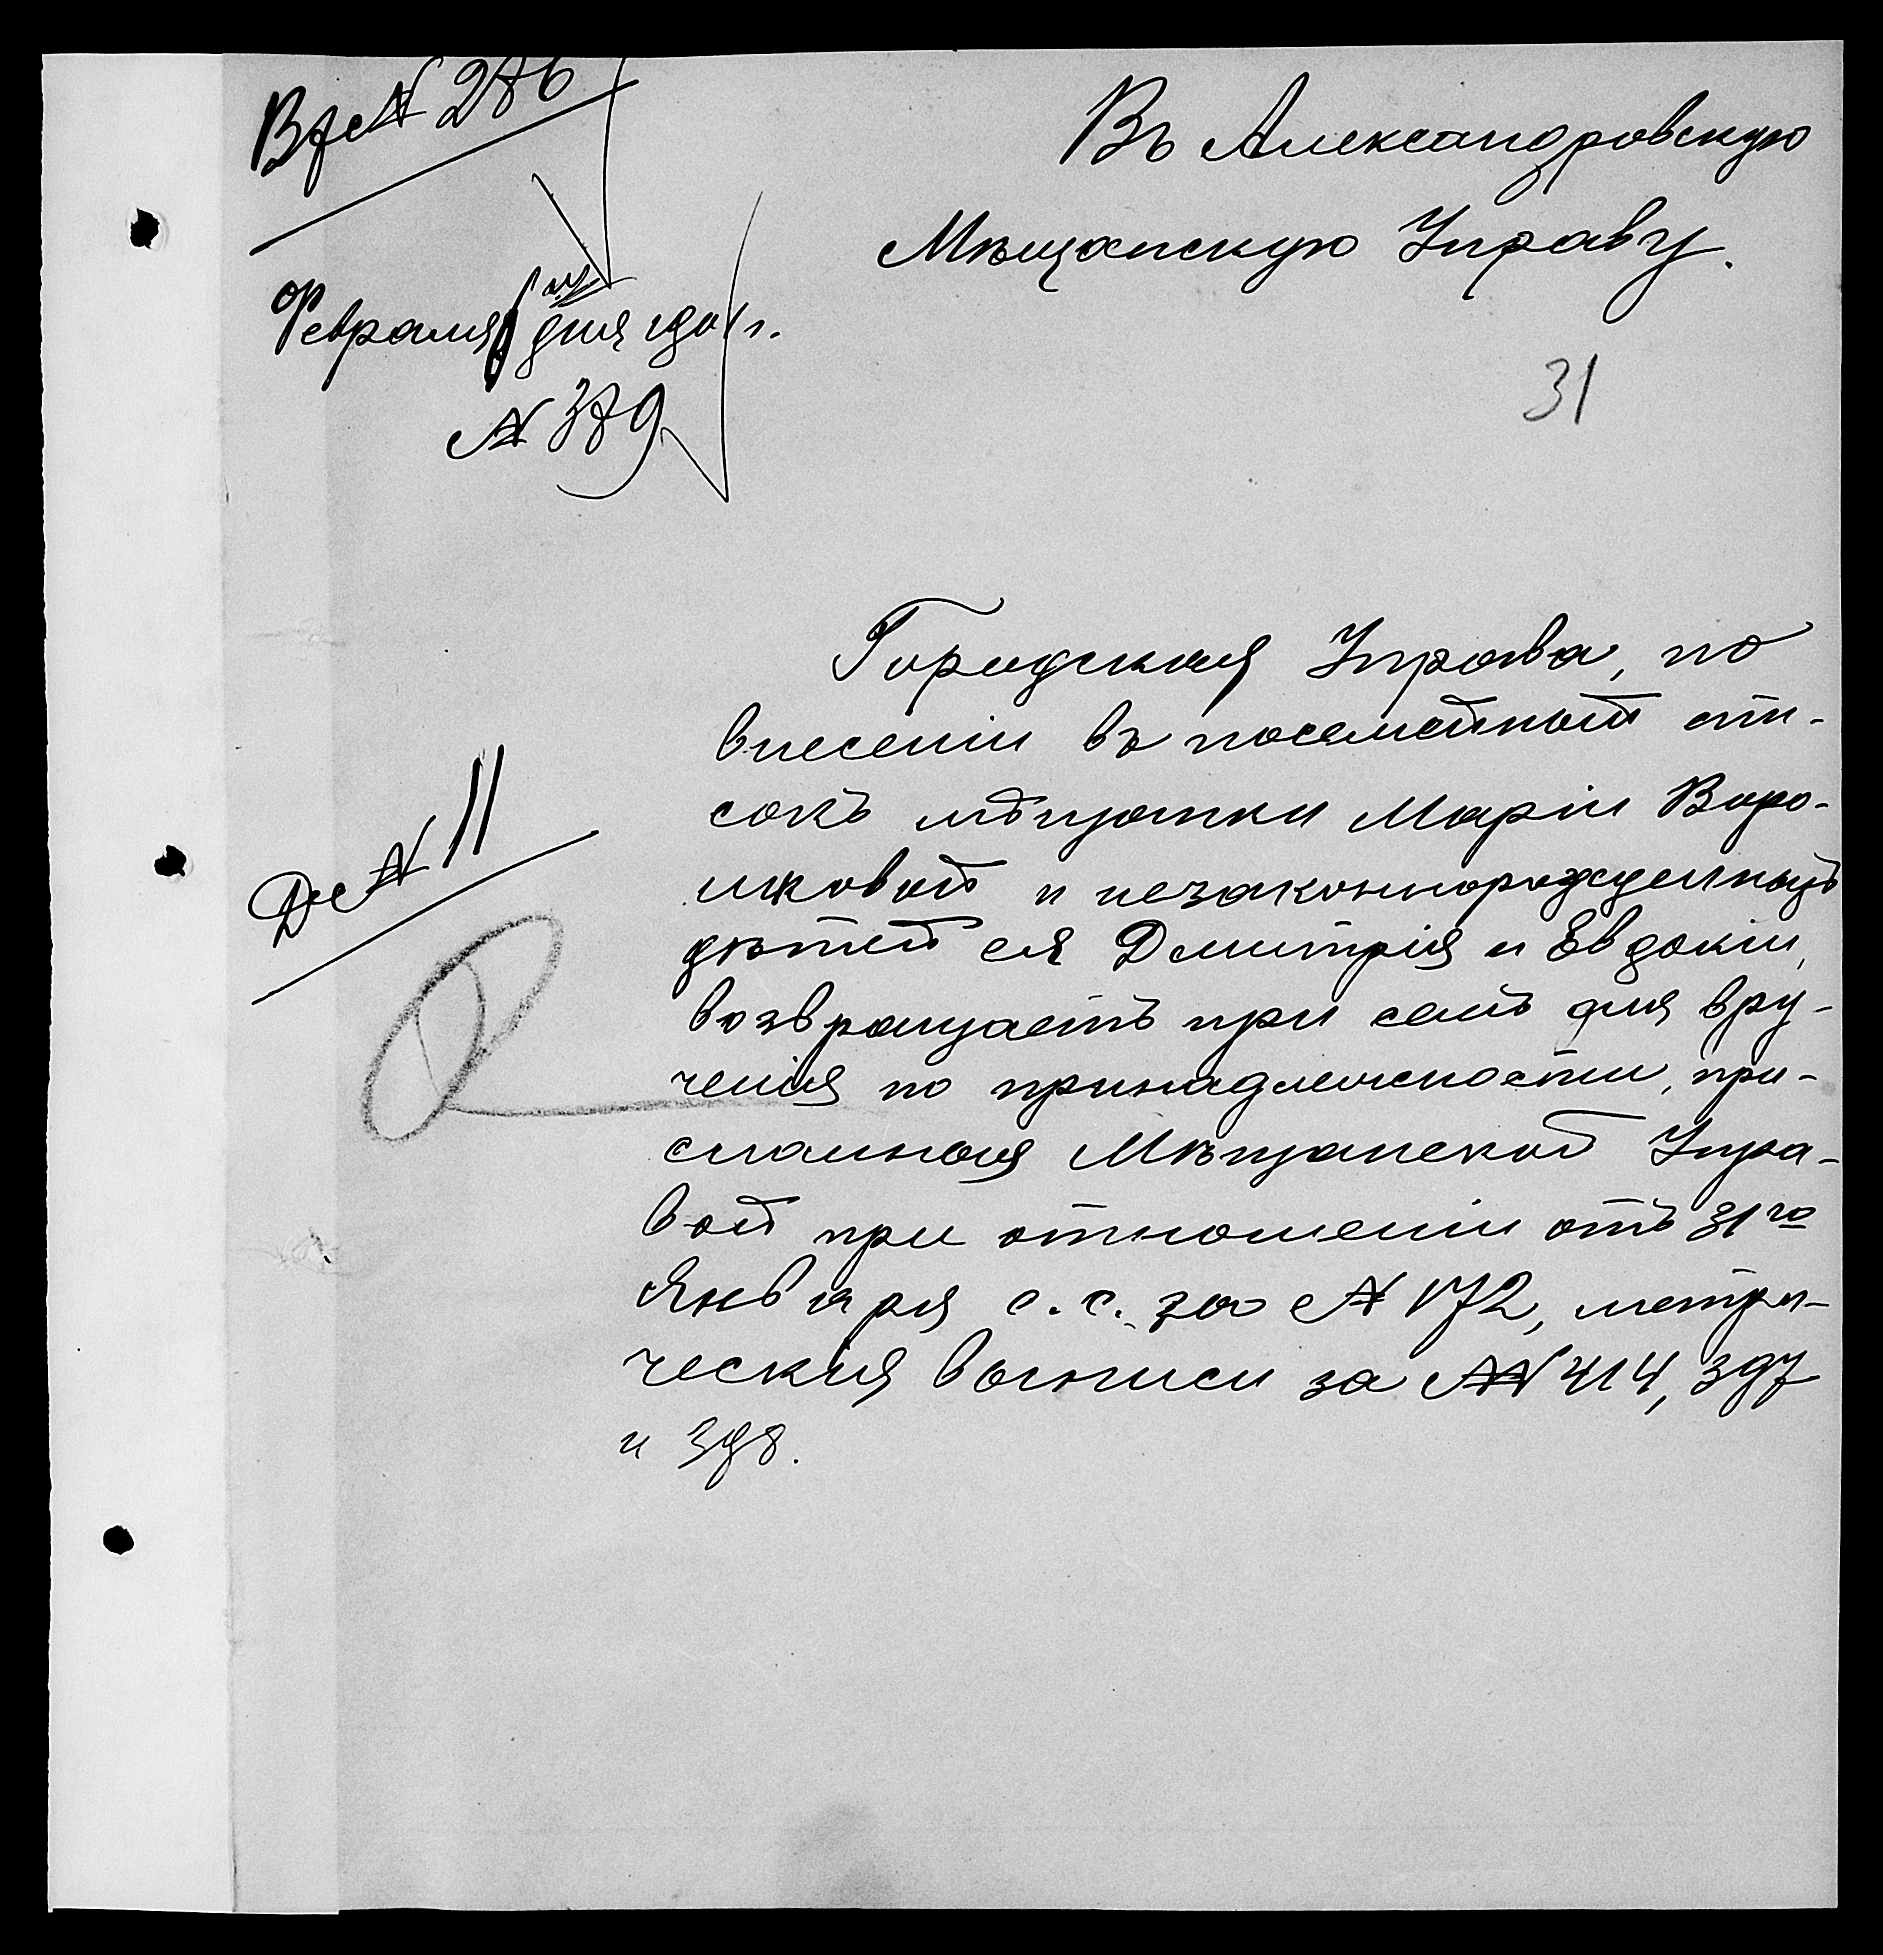 Вх № 276
Въ Александровскую
Мѣщанскую Управу.
Февраля дня 1901 г.
№ 379
31
Городская Управа, по
внесеніи въ посемейный спи-
сокъ мѣщанки Маріи Воро-
жковой и незаконнорожденныхъ
дѣтей ея Дмитрія и Евдокіи,
возвращаетъ при семъ для вру-
ченія по принадлежности, при-
сланныя Мѣщанской Упра-
вой при отношеніи отъ 31го
Января с.г. за № 172, метри-
ческія выписи за №№ 414, 397
и 398.
Де № 11